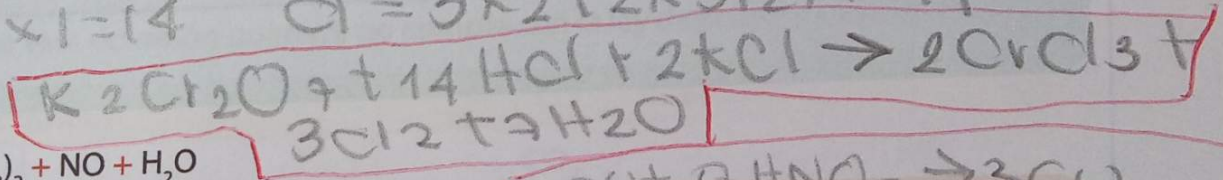 x1=14 Cl = 3x2+2x3
K2Cr2O7 + 14HCl + 2KCl → 2CrCl3 +
3Cl2 + 7H2O
)₂ + NO + H₂O
HNO → 2